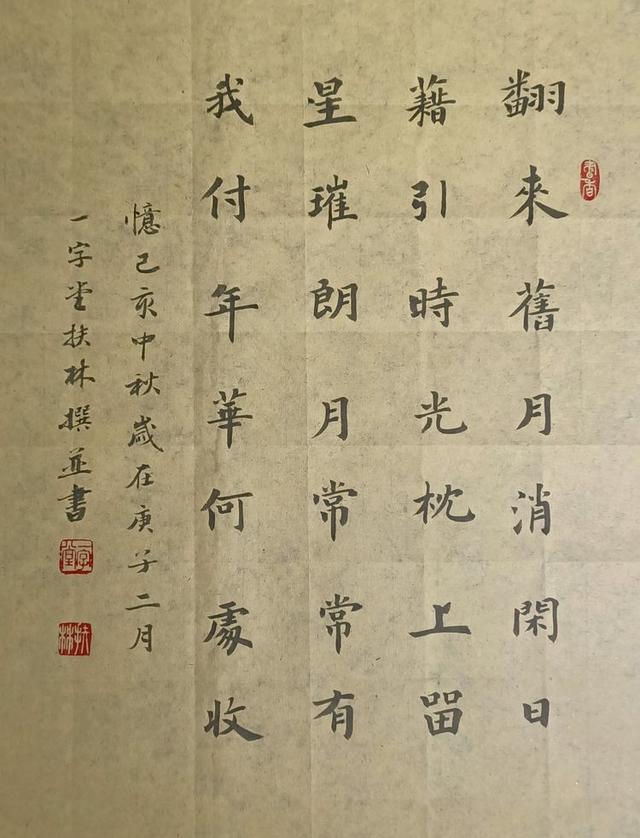 書香
翻來舊月消閑日
藉引時光枕上留
星璀朗月常常有
我付年華何處收
憶己亥中秋歲在庚子二月
一字堂扶林撰並書
一字堂
扶林